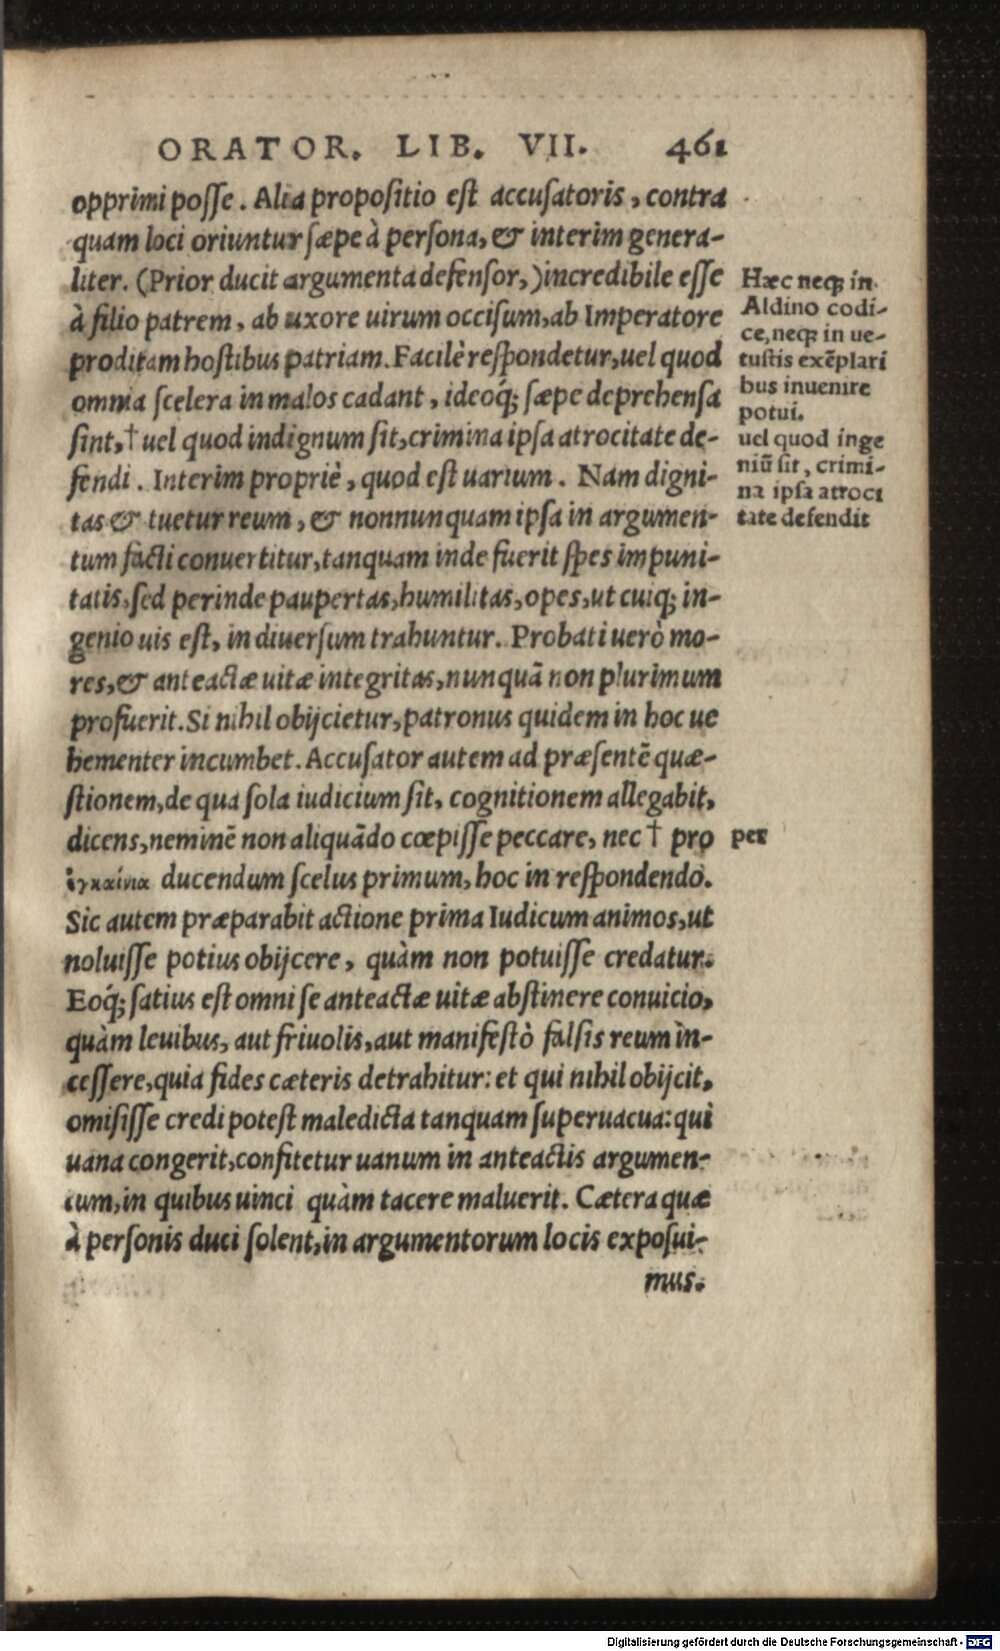 ORATOR. LIB. VII. 461
opprimi posse. Alia propositio est accusatoris, contra
quam loci oriuntur sæpe à persona, & interim genera-
liter. (Prior ducit argumenta defensor,) incredibile esse
à filio patrem, ab uxore uirum occisum, ab Imperatore
proditam hostibus patriam. Facilè respondetur, uel quod
omnia scelera in malos cadant, ideoq́; sæpe deprehensa
sint, † uel quod indignum sit, crimina ipsa atrocitate de-
fendi. Interim propriè, quod est uarium. Nam digni-
tas & tuetur reum, & nonnunquam ipsa in argumen-
tum facti conuertitur, tanquam inde fuerit spes impuni-
tatis, sed perinde paupertas, humilitas, opes, ut cuiq; in-
genio uis est, in diuersum trahuntur. Probati uerò mo-
res, & anteactæ uitæ integritas, nunquā non plurimum
profuerit. Si nihil obijcietur, patronus quidem in hoc ue
hementer incumbet. Accusator autem ad præsentē quæ-
stionem, de qua sola iudicium sit, cognitionem allegabit,
dicens, neminē non aliquādo cœpisse peccare, nec † pro
ἐγκαίνια ducendum scelus primum, hoc in respondendo.
Sic autem præparabit actione prima Iudicum animos, ut
noluisse potius obijcere, quàm non potuisse credatur.
Eoq́; satius est omni se anteactæ uitæ abstinere conuicio,
quàm leuibus, aut friuolis, aut manifestò falsis reum in-
cessere, quia fides cæteris detrahitur: et qui nihil obijcit,
omisisse credi potest maledicta tanquam superuacua: qui
uana congerit, confitetur uanum in anteactis argumen-
tum, in quibus uinci quàm tacere maluerit. Cætera quæ
à personis duci solent, in argumentorum locis exposui-
mus.
Hæc neq; in
Aldino codi-
ce, neq; in ue-
tustis exēplari
bus inuenire
potui.
uel quod inge
niū sit, crimi-
na ipsa atroci
tate defendit
per
Digitalisierung gefördert durch die Deutsche Forschungsgemeinschaft - DFG